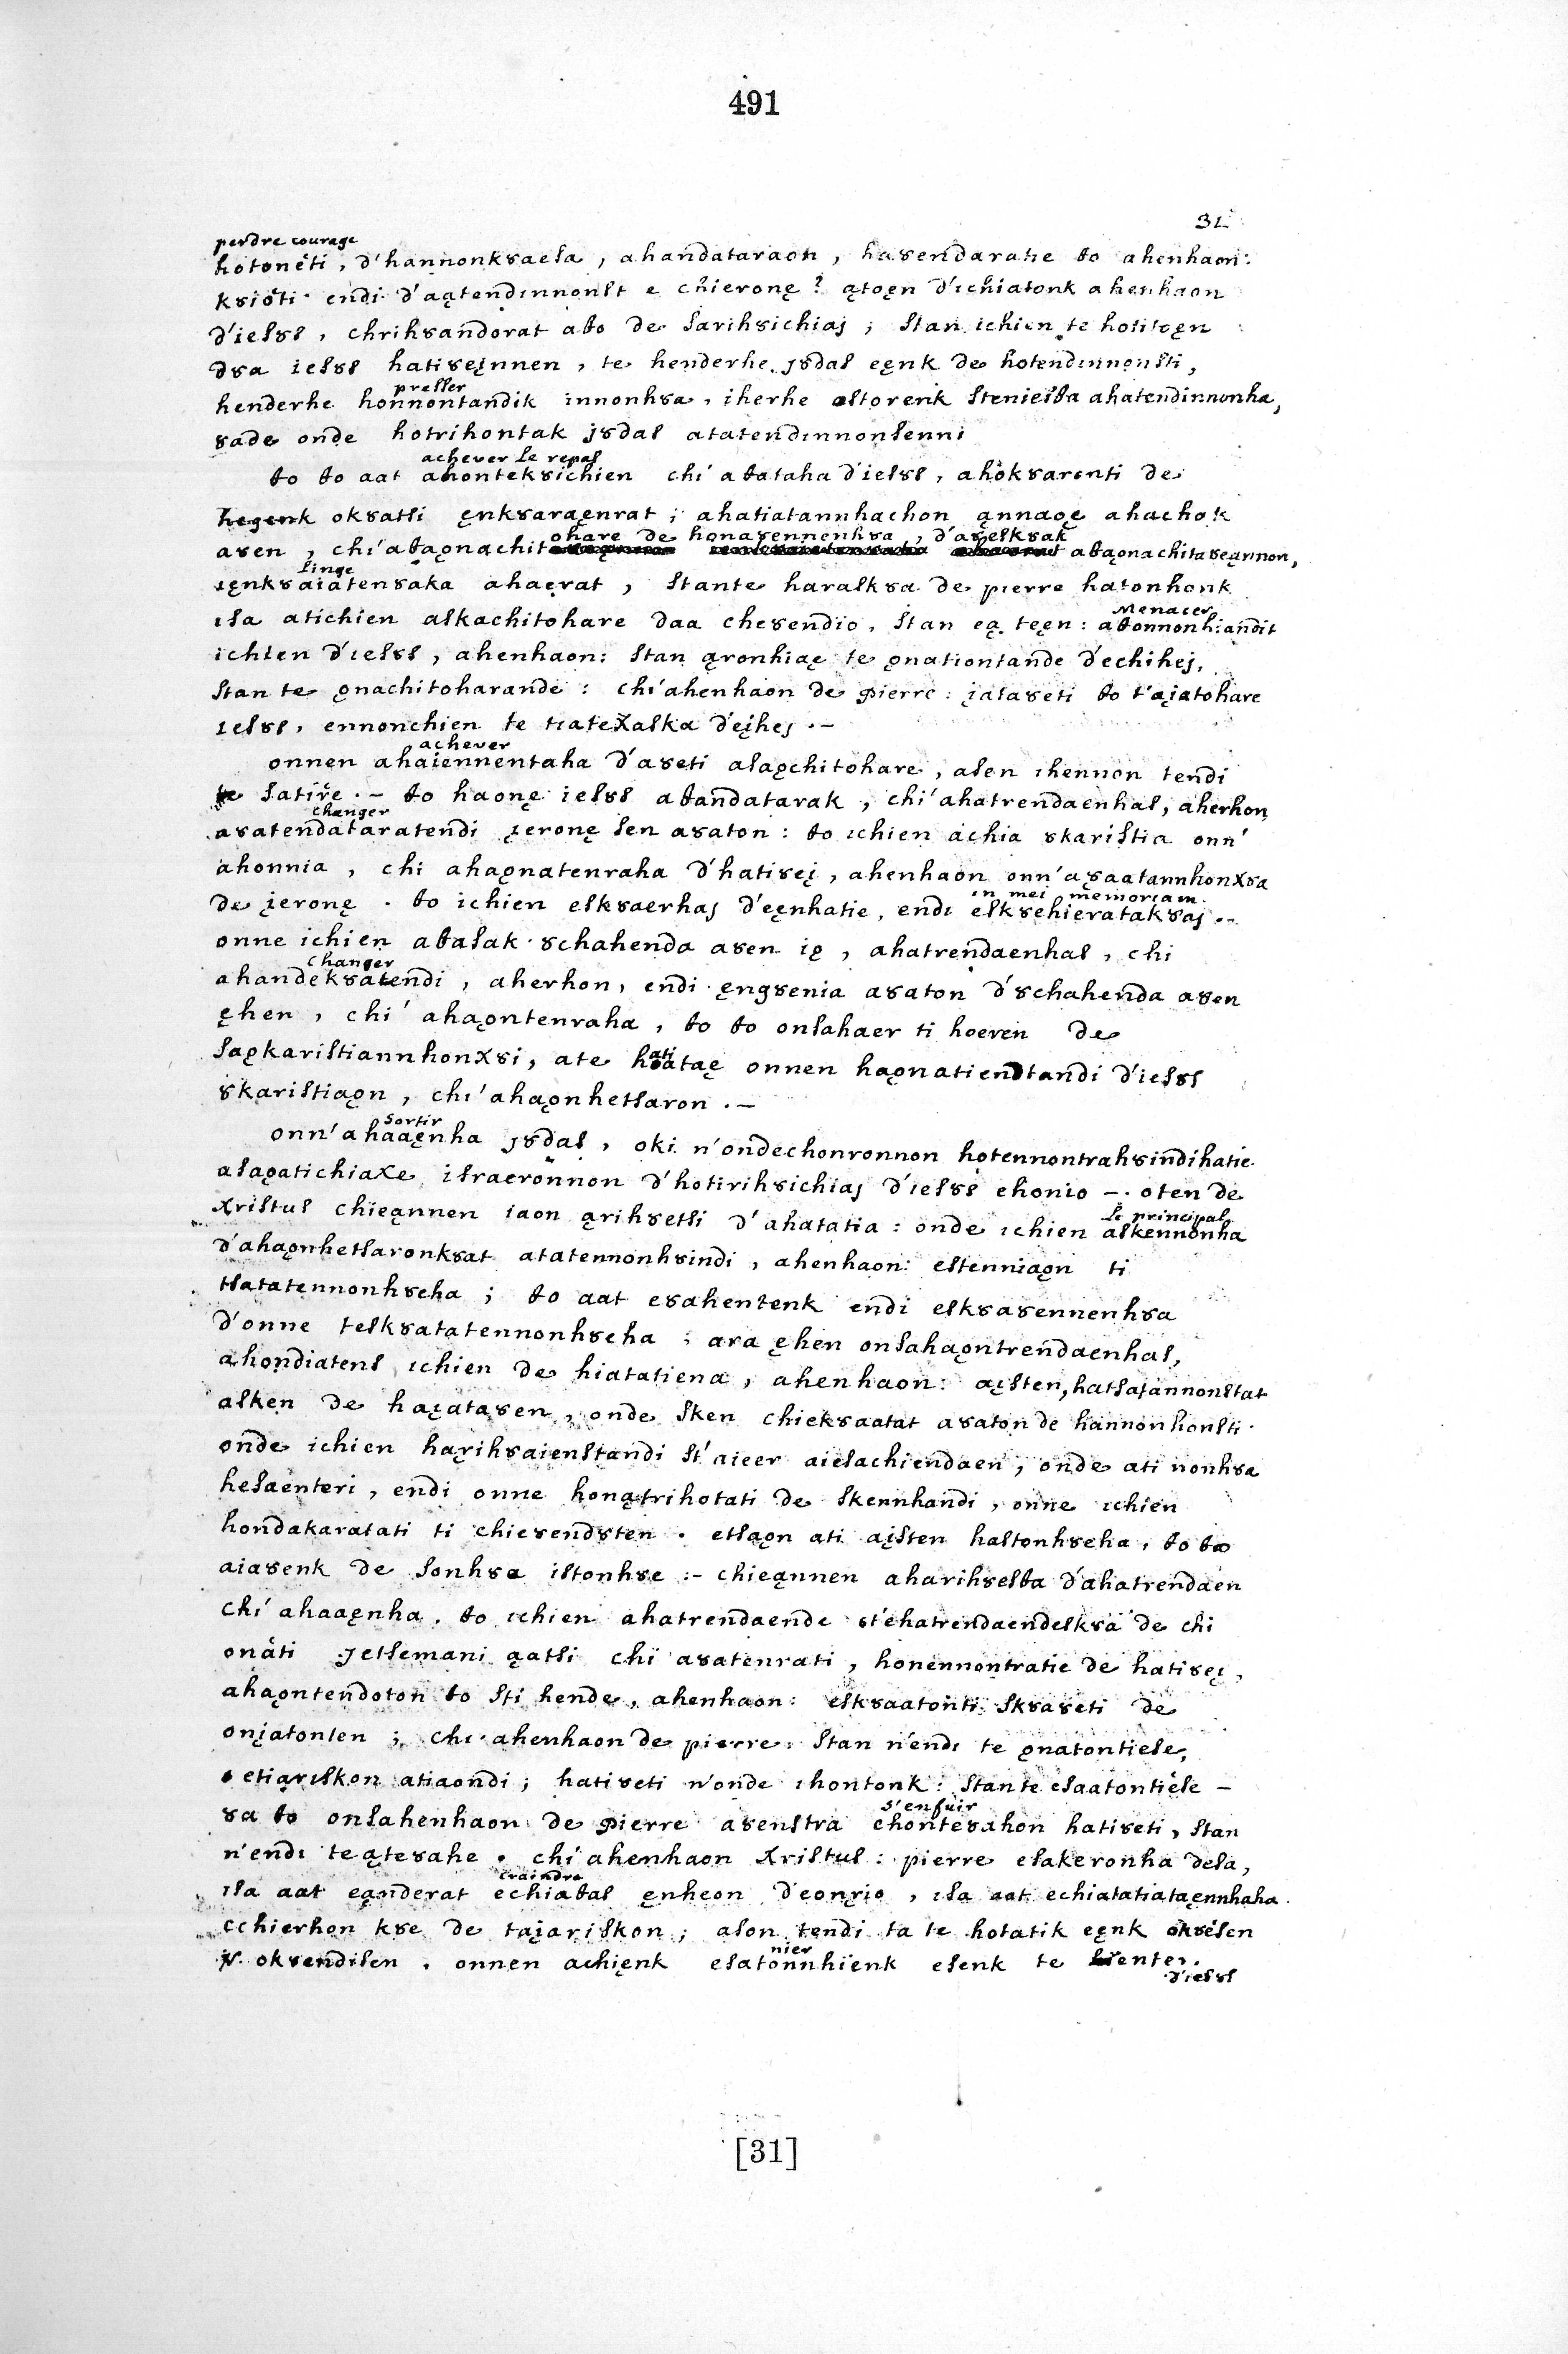 491
31
perdre courage
hotonëti, d'hannonkȣaesa, ahandataraon, haȣendaratie θo ahenhaon:
kȣiöti endi d'aątendinnonst e chieronę? ątoęn d'ichiatonk ahenhaon
d'iesȣs, chrihȣandorat aθo de sarihȣichiaj; stan ichien te hotitoęn
dȣa iesȣs hatiȣeįnnen, te henderhe jȣdas eęnk de hotendinnonsti,
presser
henderhe honnontandik innonhȣa, iherhe astorenk steniesθa ahatendinnonha,
ȣade onde hotrihontak jȣdas atatendinnonsenni
achever le repas
θo θo aat ahontekȣichien chi aθataha d'iesȣs, ahokȣarenti de
hegenk okȣatsi ęnkȣaraęnrat; ahatiatannhachon ąnnaoę ahachok
ohare de honaȣennenhȣa, d'aȣeskȣak
aȣen, chi'aθaǫnachit aθaǫnachitaȣeąnnon,
linge
ięnkȣaiatenȣaka ahaęrat, stante haraskȣa de pierre hatonhonk
Menacer
isa atichien askachitohare daa cheȣendio, stan eą teęn: aθonnonhiandit
ichien d'iesȣs, ahenhaon: stan ąronhiaę te ǫnationtande d'echihej,
stan te ǫnachitoharande: chi'ahenhaon de pierre: įataȣeti θo t'aįatohare
iesȣs, ennonchien te tiateχaska d'eįhej .-
achever
onnen ahaiennentaha d'aȣeti asaǫchitohare, asen ihennon tendi
te satiȣe .- θo haonę iesȣs aθandatarak, chi'ahatrendaenhas, aherhon,
changer
aȣatendataratendi įeronę sen aȣaton: θo ichien achia ȣkaristia onn'
ahonnia, chi ahaǫnatenraha d'hatiȣeį, ahenhaon onn'aȣaatannhonχȣa
in mei memoriam
de įeronę. θo ichien eskȣaerhaj d'eęnhatie, endi eskȣehierataskȣaj .-
onne ichien aθasak ȣchahenda aȣen ię, ahatrendaenhas, chi
changer
ahandekȣatendi, aherhon, endi ęngȣenia aȣaton d'ȣchahenda aȣen
ęhen, chi' ahaǫntenraha, θo θo onsahaer ti hoeren de
ati
saǫkaristiannhonχȣi, ate hoataę onnen haǫnatiendtandi d'iesȣs
ȣkaristiaǫn, chi'ahaǫnhetsaron .-
sortir
onn'ahaaęnha jȣdas, oki n'ondechonronnon hotennontrahȣindihatie
asaǫatichiaχe israeronnon d'hotirihȣichiaj d'iesȣs ehonio -. oten de
χristus chieąnnen iaon ąrihȣetsi d'ahatatia: onde ichien askennonha
le principal
d'ahaǫnhetsaronkȣat atatennonhȣindi, ahenhaon: estenniaǫn ti
tsatatennonhȣeha; θo aat eȣahentenk endi eskȣaȣennenhȣa
d'onne teskȣatatennonhȣeha; ara ęhen onsahaǫntrendaenhas,
ahondiatens ichien de hiatatiena, ahenhaon: aįsten, hatsatannonstat
asken de haįataȣen, onde sken chiekȣaatat aȣaton de hannonhonsti
onde ichien harihȣaienstandi st'aieer aiesachiendaen, onde ati nonhȣa
hesaenteri, endi onne honątrihotati de skennhandi, onne ichien
hondakaratati ti chieȣendȣten. etsaǫn ati aįsten hastonhȣeha, θo θo
aiaȣenk de sonhȣa istonhȣe :- chieąnnen aharihȣesθa d'ahatrendaen
chi'ahaaęnha. θo ichien ahatrendaende st'ehatrendaendeskȣa de chi
onati Jetsemani ąatsi chi aȣatenrati, honennontratie de hatiȣeį,
ahaǫntendoton θo sti hende, ahenhaon: eskȣaatonti skȣaȣeti de
oniatonten; chi ahenhaon de pierre: stan n'endi te ǫnatontiese,
etiąriskon atiaondi; hatiȣeti n'onde ihontonk: stante esaatontiese -
s'enfuir
ȣa θo onsahenhaon de pierre aȣenstra ehonteȣahon hatiȣeti, stan
n'endi te ąteȣahe. chi ahenhaon χristus: pierre esakeronha desa,
craindre
isa aat eąnderat echiaθas ęnheon d'eonrio, isa aat echiatatiataęnnhaha
echierhon kȣe de taįariskon; ason tendi ta te hotatik eęnk okȣesen
nier
okȣendisen. onnen achięnk esatonnhienk esenk te ienteri
d'iesȣs
[31]